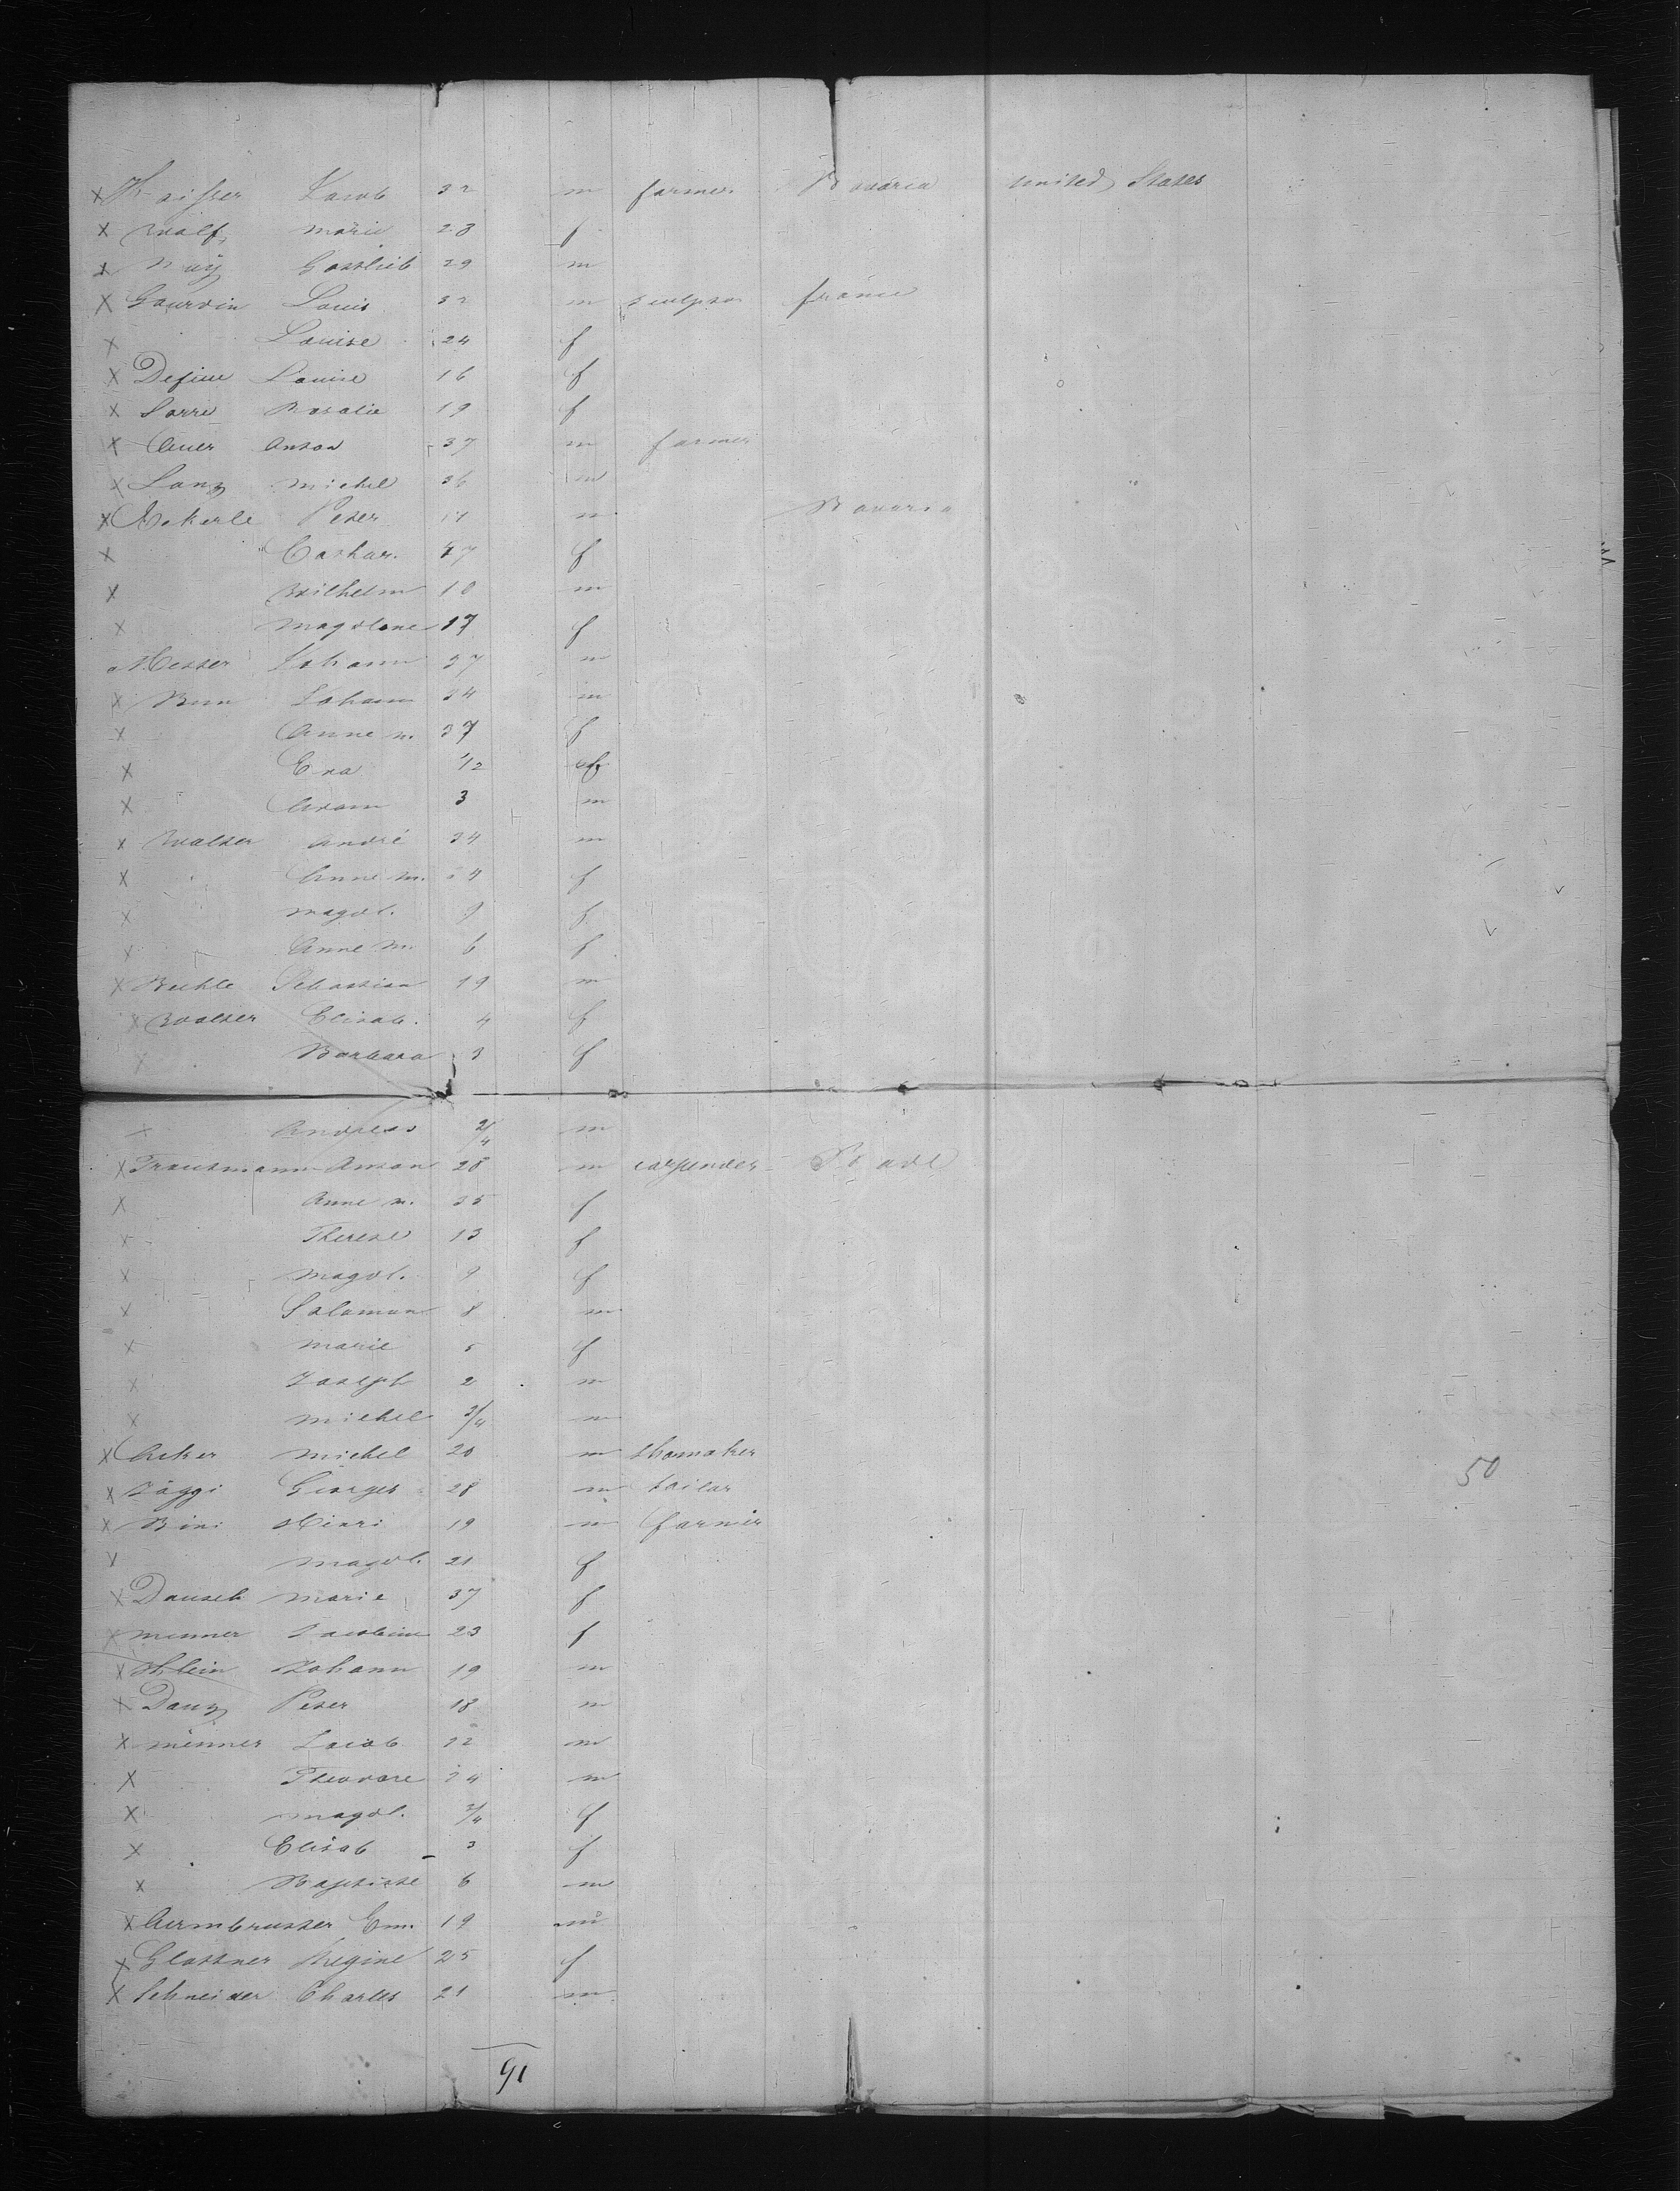 x Kaisser Jacob 32 m farmer Bavaria united States
x Wolf marie 23 f
x May Gottlieb 29 m
x Gourdin Louis 32 m sculptor france
x Louise 24 f
x Louise 16 f
x Sorre Rosalie 19 f
x Auer Anton 37 m farmer
x Lanz michel 36 m
x Ekerle Peter m Bavaria
x Cathar. 47 f
x Wilhelm 10 m
x magdlene 17 f
Messer Johann 37 m
x Johann 34 m
x Anne m. 37 f
x Eva 12 f
x Adam 3 m
x Walter André 34 m
x Anne m. 34 f
x magdl. 9 f
x Anne m. 6 f
x Buhle Sebastian 19 m
x Walter Elisab. 4 f
x Barbara 3 f
x Andreas 2/4 m
x Trautmann Anton 28 m carpender Bade
x Anne m. 35 f
x Therese 13 f
x magdl. 9 f
x Salomon 8 m
x marie 5 f
x Joseph 2 m
x michel 3/4 m
x Acker michel 20 m shomaker 50
x Jäggi Georges 28 m tailor
x Bini Henri 19 m farmer
x magdl. 21 f
x Dausch marie 37 f
x menner Jacobine 23 f
x Klein Johann 19 m
x Danz Peter 18 m
x menner Jacob 12 m
x Theodore 14 m
x magdl. 3/4 f
x Elisab 3 f
x Baptiste 6 m
x Armbruster Em. 19 m
x Glastner Regine 25 f
x Schneider Charles 21 m
91